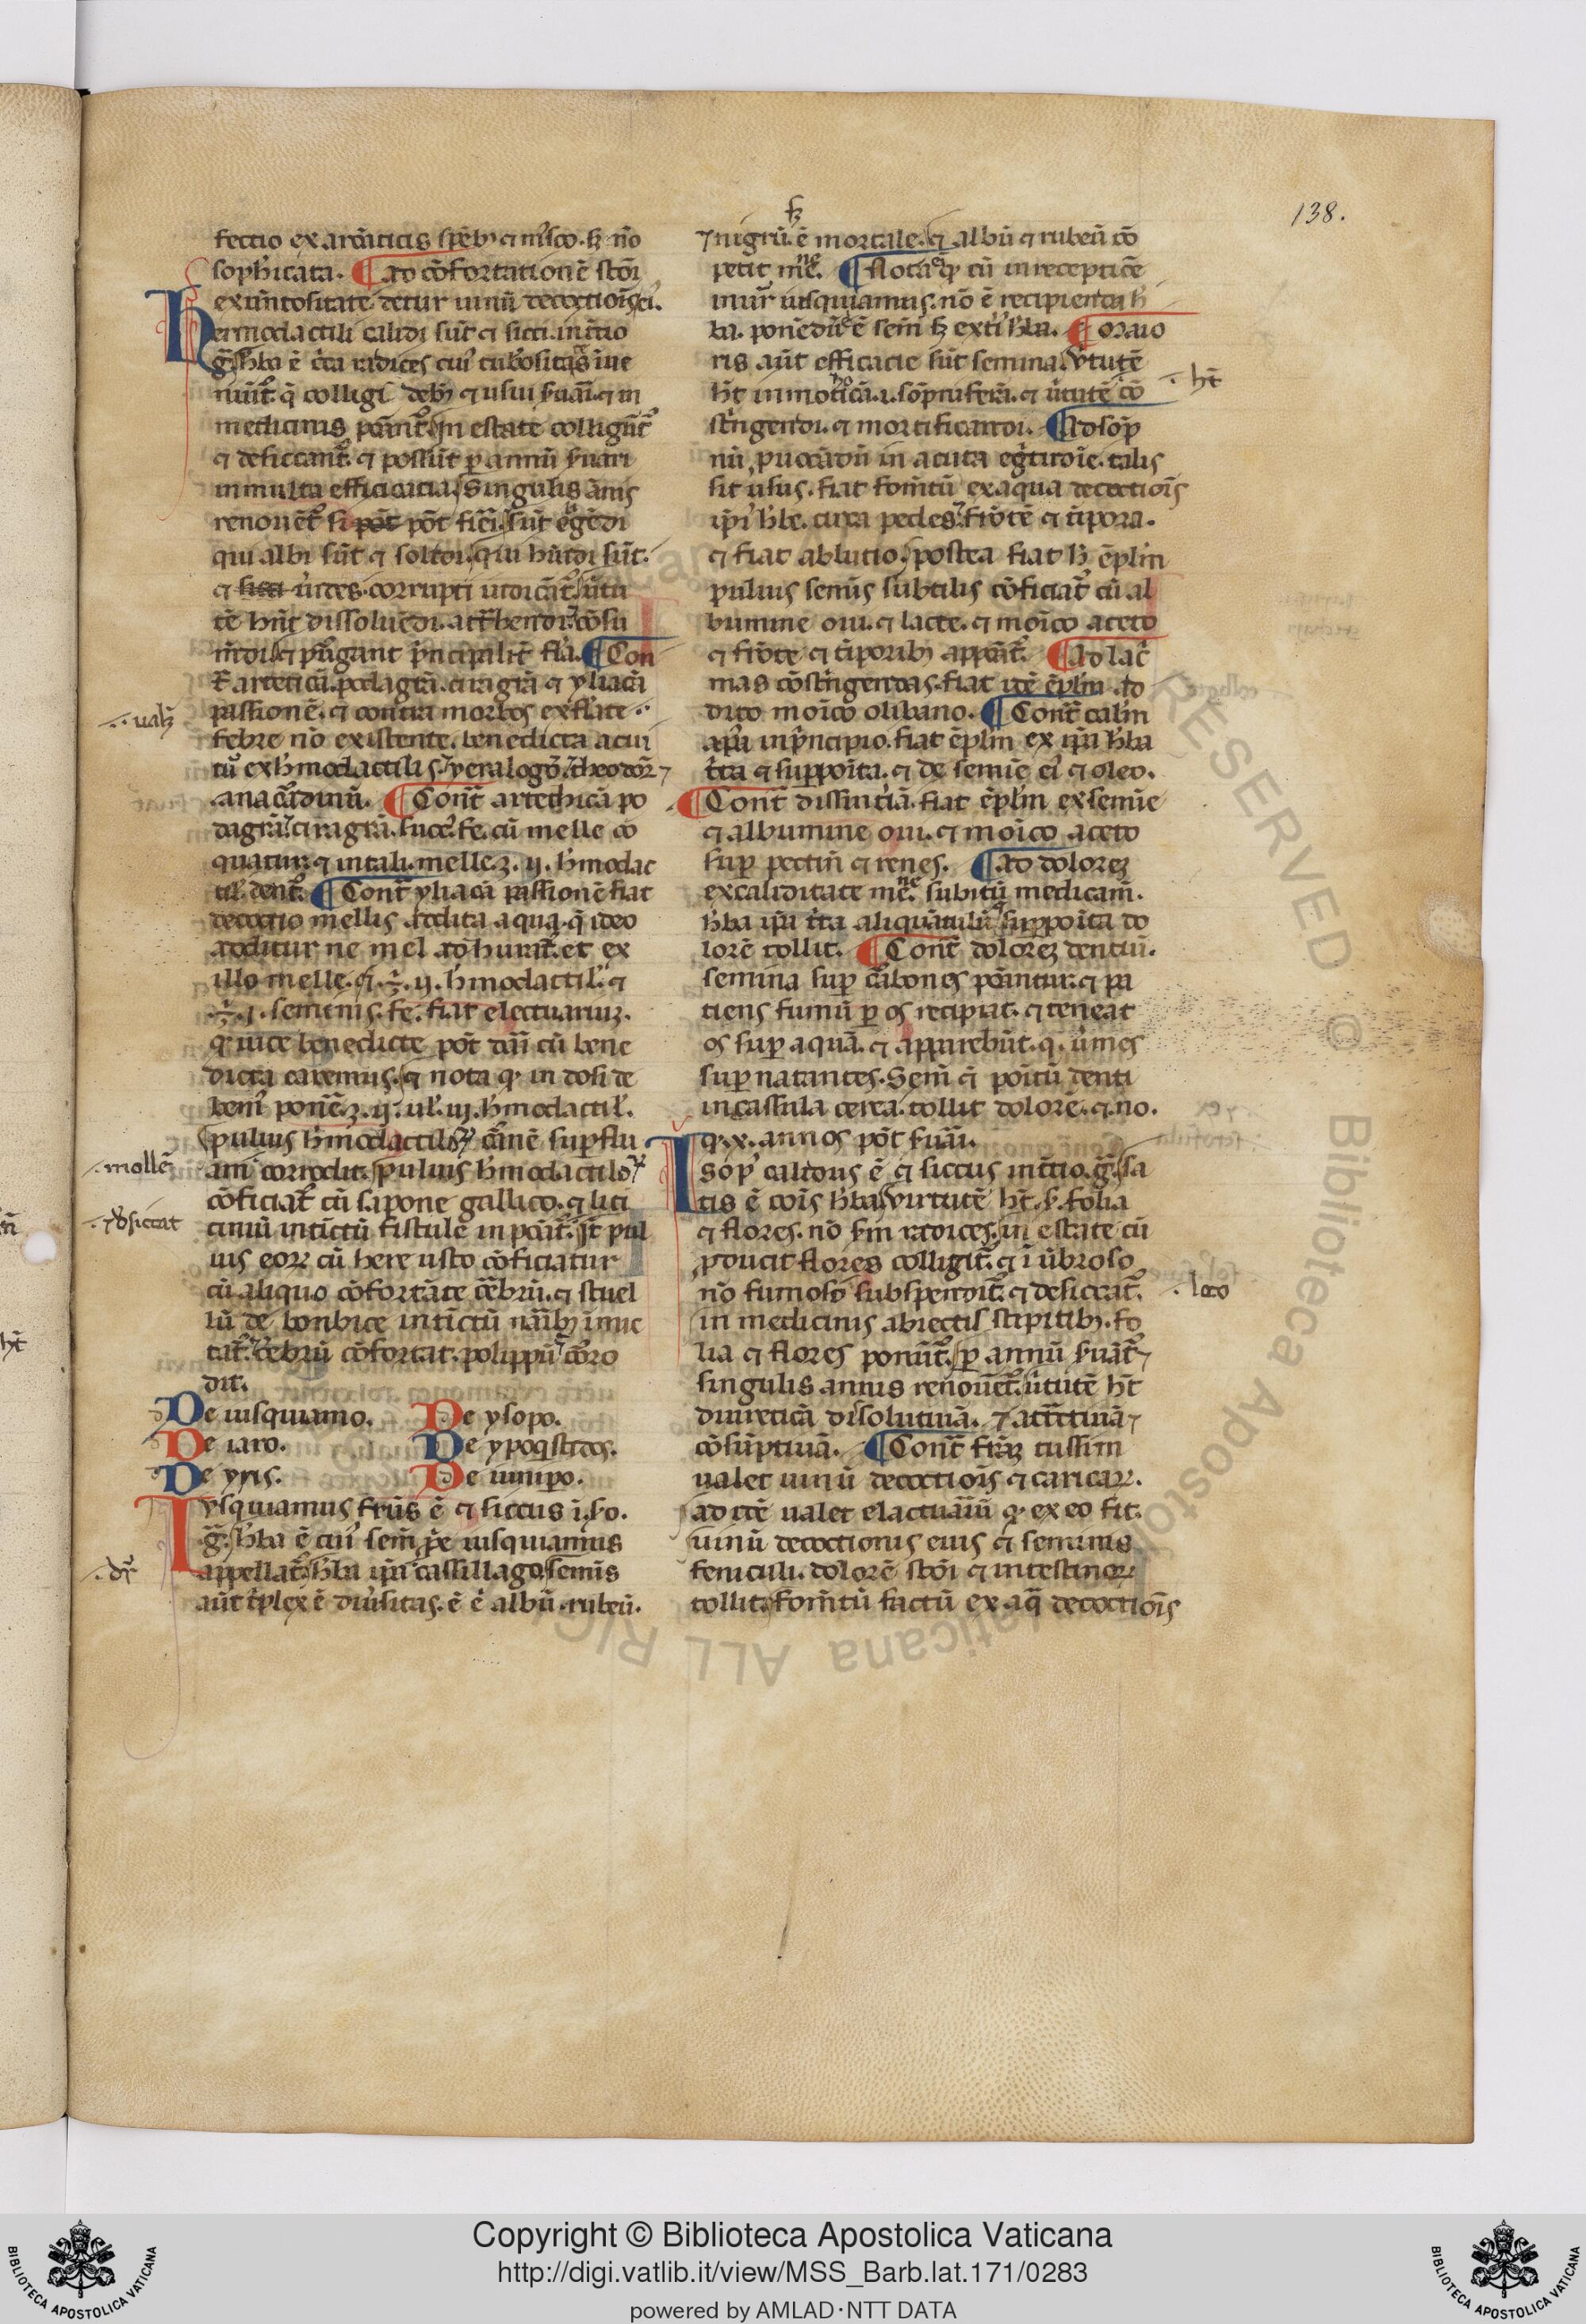 138.
fectio ex aromaticis spēbꝫ ⁊ musco. sꝫ nō
sophisticata. ¶ Ad cōfortationē stoi
ex uētositate detur uinū decoctiois ei.
Hermodactili calidi sūt ⁊ sicci in tertio
g. herba ē
nitur q̄ colligi debꝫ ⁊ usui ⁊ in
medicinis In estate colligūt̄
⁊ desiccant̄. ⁊ possūt p annū suari
in multa efficacia. Singulis ānis
renouēt̄ si pōt fieri. sūt eligēdi
qui albi sūt ⁊ solidi. qui
⁊ corrupti iudicāt̄. uītu
tē hn̄t dissoluēdi. attrahendi. cōsu
mēdi. ⁊ purgant prīncipalit̄ fla. ¶ Con
t̄ arteticā. podagrā. ciragrā ⁊ yliacā
passionē. ⁊ contra morbos ex flāte
ualꝫ
febre nō existente. benedicta acui
tur ex hmodactilis. yeralogō. theodor̄
anacardinū. ¶ Cont̄ artethicā po
dagrā. ciragrā. succꝰ fe. cū melle co
quatur. ⁊ in tali melle ʒ. ij. hmodac
til. dent̄. ¶ Cont̄ yliacā passionē fiat
decoctio mellis addita aqua. q̄ ideo
additur ne mel adhurat̄. et ex
illo melle. ⁊ ℥. ij. hmodactil. ⁊
℥. j. seminis. fe. fiat electuariuꝫ.
q uice benedicte pōt dari cū bene
dicta caremus. ⁊ nota q in dosi de
bem ponē ʒ. ij. ul. iij. hmodactil.
puluis hmodactiloꝝ carnē supflu
mollē
am corrodit. puluis hmodactiloꝝ
cōficiat̄ cū sapone gallico. ⁊ lici
desiccat
ciniū intīctū fistule in pōat̄. It pul
uis eoꝝ cū here usto cōficiatur
cū aliquo cōfortāte cerebrū. ⁊ stuel
lū de bonbice intīctū naribꝫ imic
tat̄. cerebrū cōfortat. polippū corro
dit.
De iusquiamo. De ysopo.
De iaro. De ypoqstidos.
De yris. De iunipo.
Iusquiamus frīus ē ⁊ siccus i. so.
g. herba ē cui sem̄ iusquiamus
appellat̄. herba ipa cassillago. semīs
dr̄
aūt tplex ē diuisitas. ē ē albū. rubeū.
⁊ nigrū. sꝫ ē mortale. ⁊ albū ⁊ rubeū cō
petit me. ¶ Nota q cū in receptiōe
inuēr iusquiamus. nō ē recipienda h
ba. ponēdū ē sem̄ sꝫ exti hba. ¶ Maio
ris aūt efficacie sūt semina. virtutē
hn̄t
hn̄t .i. sōpniferā. ⁊ virtutē cō
stringendi. ⁊ mortificandi. ¶ Ad sōp
nū puocādū in acuta egritudie. talis
sit usus. fiat fomētū ex aqua decoctiois
ipi hbe. circa pedes. frōtē ⁊ tipora.
⁊ fiat ablutio. postea fiat h ēplm
puluis semīs subtilis cōficiat̄ cū al
bumine oui. ⁊ lacte. ⁊ modico aceto
⁊ frōte ⁊ tiporibꝫ appōat̄. ¶ Ad lac
mas cōstringendas. fiat idē ēplm ad
dito modico olibano. ¶ Cont̄ calim
apa in prīncipio. fiat ēplm ex ipa hba
trita ⁊ supposita. ⁊ de semie ei ⁊ oleo.
¶ Cont̄ dissintiā. fiat ēplm ex semie
⁊ albumine oui. ⁊ modico aceto
sup pectin ⁊ renes. ¶ Ad doloreꝫ
ex caliditate me. subitū medicam̄.
hba ipa trita aliquātulū supposita do
lorē tollit. ¶ Cont̄ doloreꝫ dentiū.
semina sup carbones pōantur. ⁊ pa
tiens fumū p os recipiat. ⁊ teneat
os sup aquā. ⁊ apparebūt. q. uimes
supnatantes. Sem̄ ei poitū denti
in cassula cerea. tollit dolorē. ⁊ no.
q. x. annos pōt suari.
Isop calidus ē ⁊ siccus in tertio. g. sa
tis ē cois hba. virtutē ht. s. folia
⁊ flores. nō sm radices. in estate cū
pducit flores colligit̄. ⁊ i ūbroso
loco
nō fumoso subspendit̄. ⁊ desiccat̄.
in medicinis abiectis stipitibꝫ. fo
lia ⁊ flores ponūt̄. p annū suāt̄
singulis annis renouēt̄. virtutē ht
diureticā dissolutiuā. ⁊ attractiuā
cōsūptiuā. ¶ Cont̄ frigidaꝫ tussim
ualet uinū decoctiois ⁊ caricaꝝ.
ad idē ualet elactuariū q ex eo fit.
uinū decoctionis eius ⁊ seminis
feniculi. dolorē stoi ⁊ intestinoꝝ
tollit. fomētū factū ex aq̄ decoctiois
Copyright © Biblioteca Apostolica Vaticana
http://digi.vatlib.it/view/MSS_Barb.lat.171/0283
powered by AMLAD·NTT DATA
BIBLIOTECA APOSTOLICA VATICANA
BIBLIOTECA APOSTOLICA VATICANA